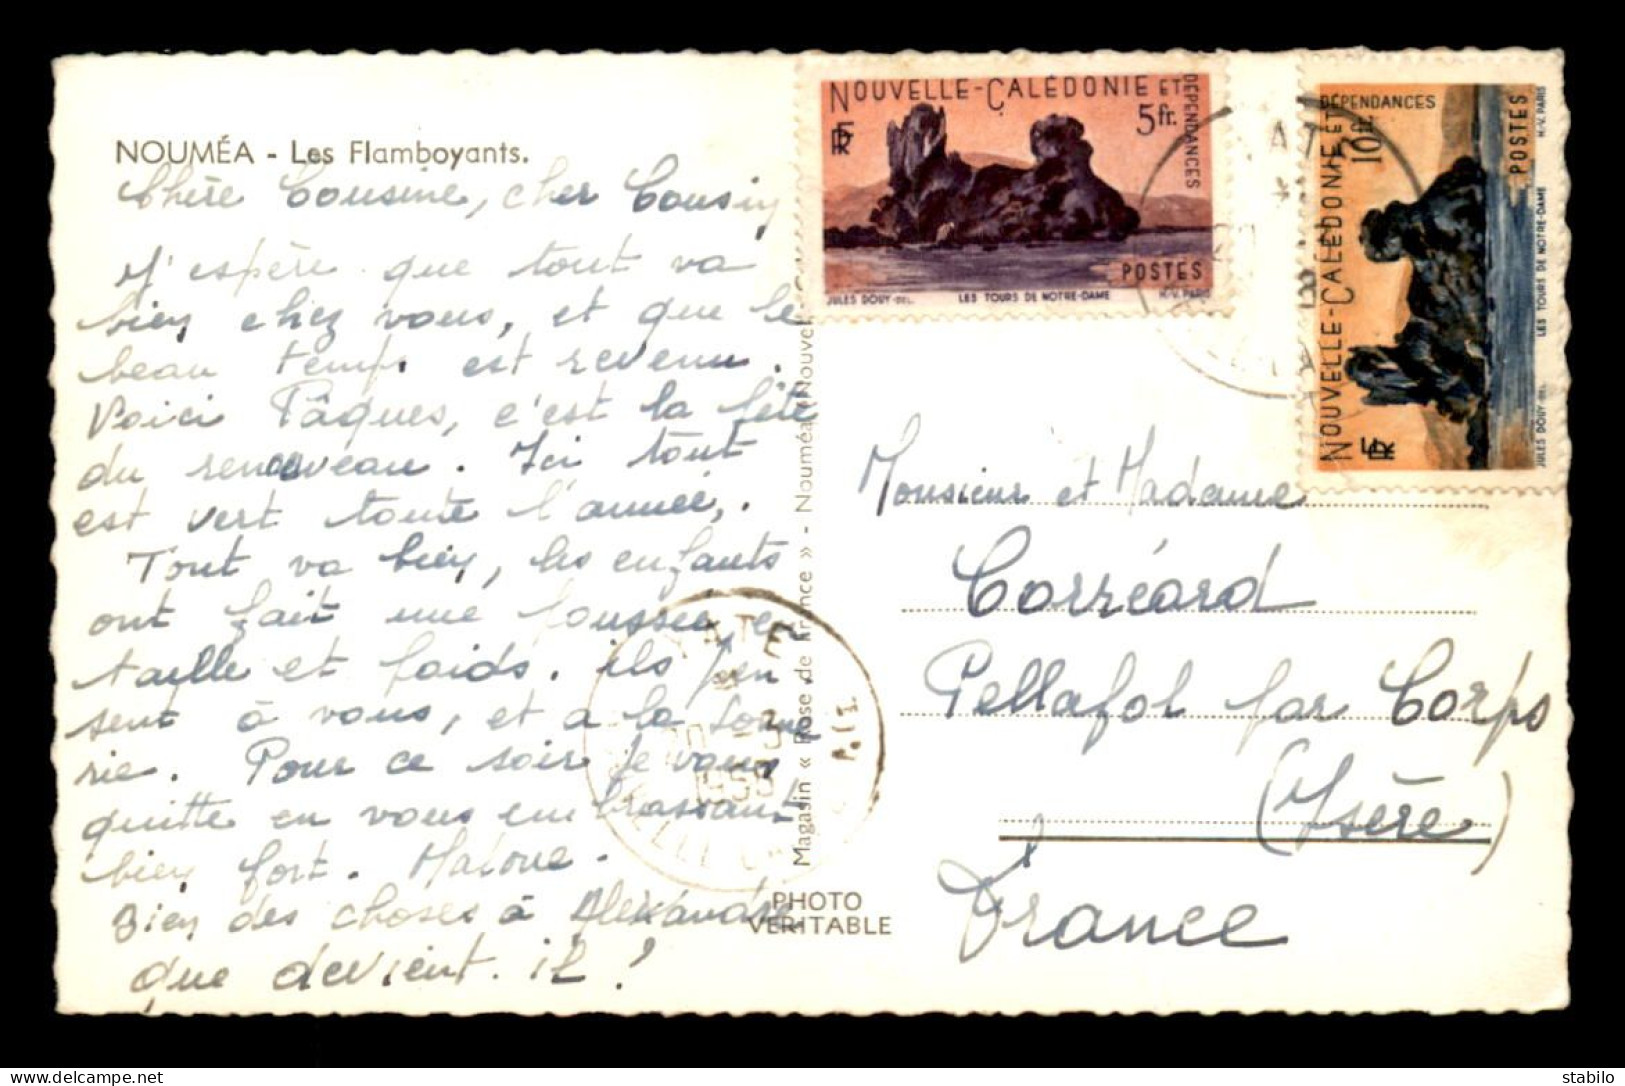 NOUMÉA - Les Flamboyants.
Chère Cousine, cher Cousin
J'espère que tout va
bien chez vous, et que le
beau temps est revenu.
Voici Pâques, c'est la fête
du renouveau. Ici tout
est vert toute l'année.
Tout va bien, les enfants
ont fait une poussée en
taille et poids. ils pen
sent à vous, et a la
rie. Pour ce soir je vous
quitte en vous embrassant
bien fort.
Bien des choses à Alexandre
que devient-il ?
Magasin « Rose de France » - Nouméa
PHOTO
VERITABLE
NOUVELLE-CALÉDONIE ET
DÉPENDANCES
RF
5fr.
POSTES
JULES DOUY-DEL.
LES TOURS DE NOTRE-DAME
H.V. PARIS
NOUVELLE-CALÉDONIE ET
DÉPENDANCES
RF
10fr.
POSTES
JULES DOUY-DEL.
LES TOURS DE NOTRE-DAME
H.V. PARIS
YATE
20 -3
Monsieur et Madame
Corréard
Pellafol par Corps
(Isère)
France
stabilo